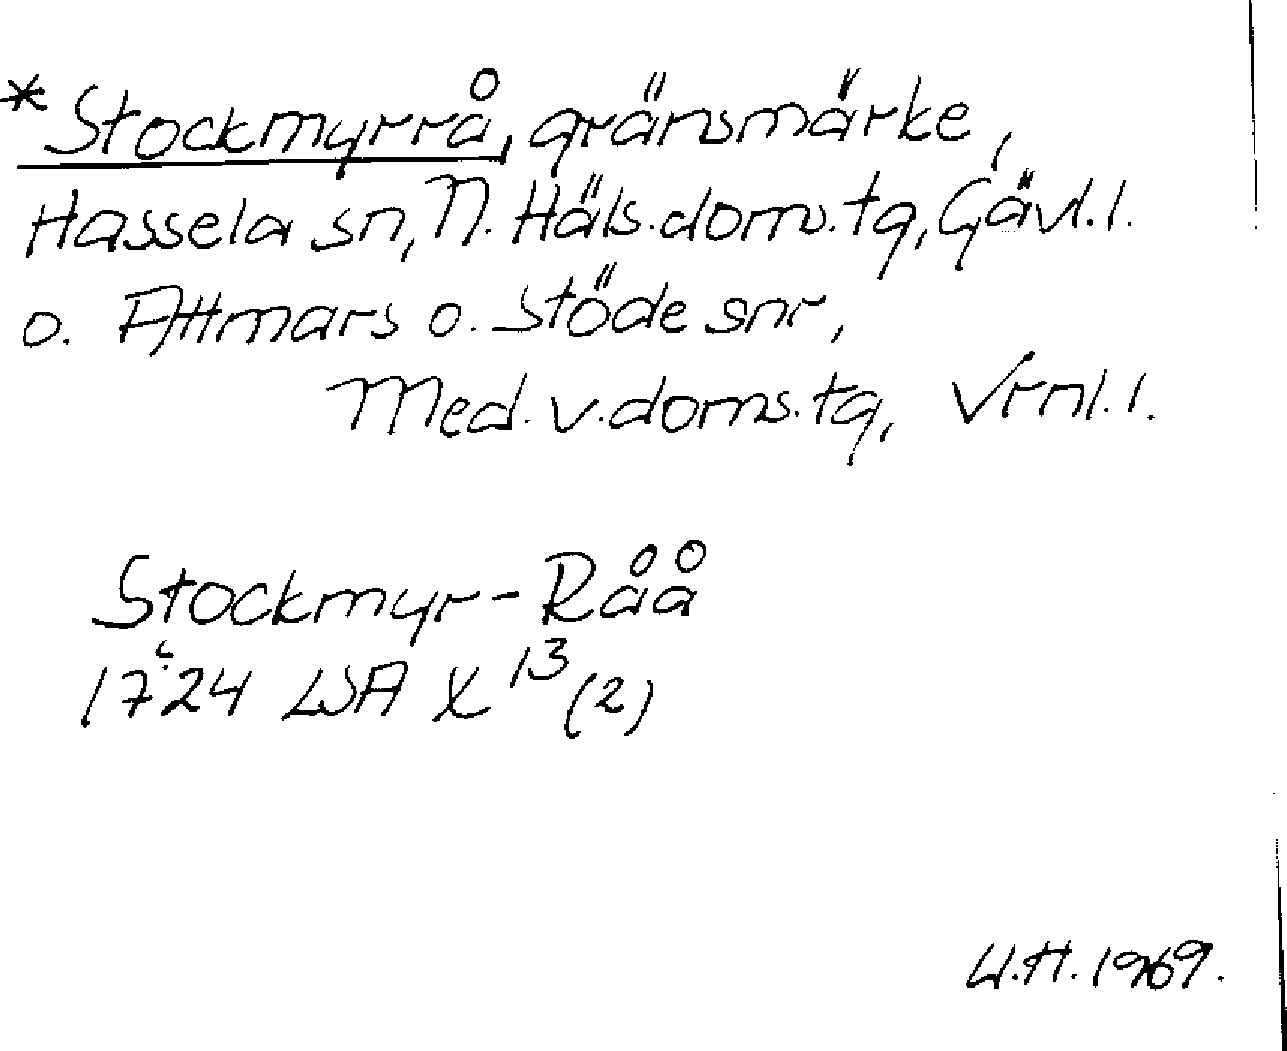 *Stockmyrrå, gränsmärke,
Hassela sn, N. Häls. doms. tg, Gävl. l.
o. Attmars o. Stöde snr,
Med. v. doms. tg, Vrnl. l.
Stockmyr-Råå
1724 LSA X 13 (2)
U.H. 1969.